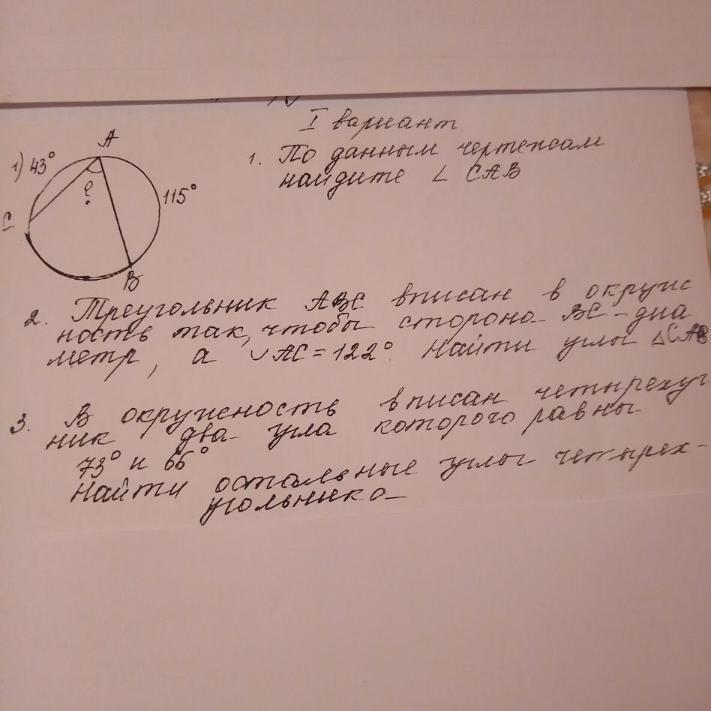 I вариант
1) 43°
A
1. По данным чертежам
найдите ∠ CAB
115°
C
B
2. Треугольник ABC вписан в окруж
ность так, чтобы сторона BC - диа
метр, а ◡AC = 122°. Найти углы △CAB
3. В окружность вписан четырехуг
ник два угла которого равны
73° и 66°
Найти остальные углы четырех-
угольника